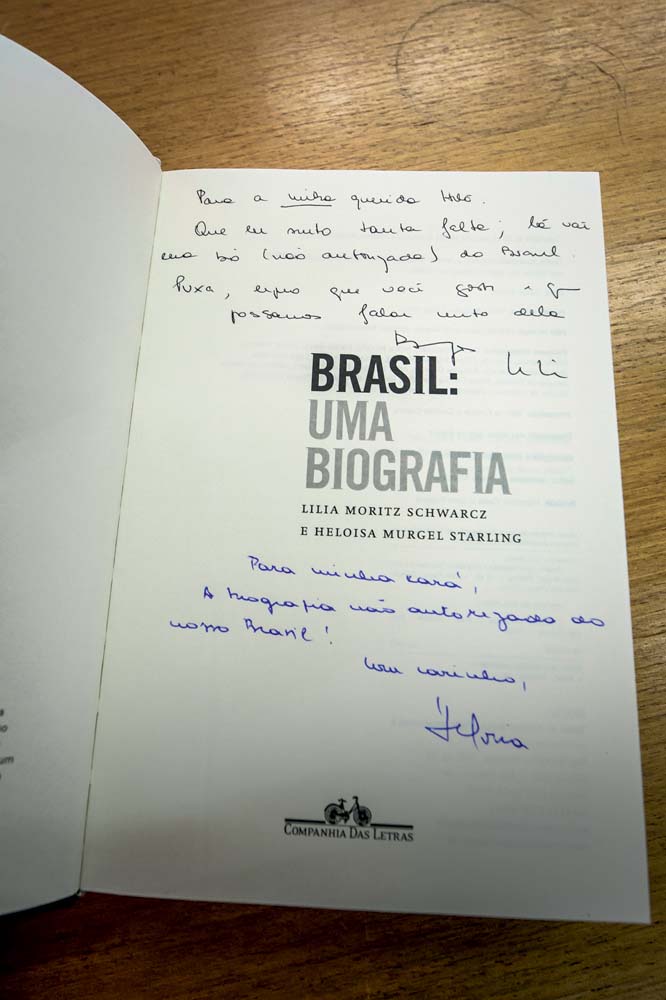 Para a minha querida Helô.
Que eu sinto tanta falta; lá vai
uma bio (não autorizada) do Brasil.
Puxa, espero que você goste e q
possamos falar muito dela
Lili
BRASIL:
UMA
BIOGRAFIA
LILIA MORITZ SCHWARCZ
E HELOISA MURGEL STARLING
Para minha xará,
A biografia não autorizada do
nosso Brasil!
Com carinho,
Heloisa
COMPANHIA DAS LETRAS
um